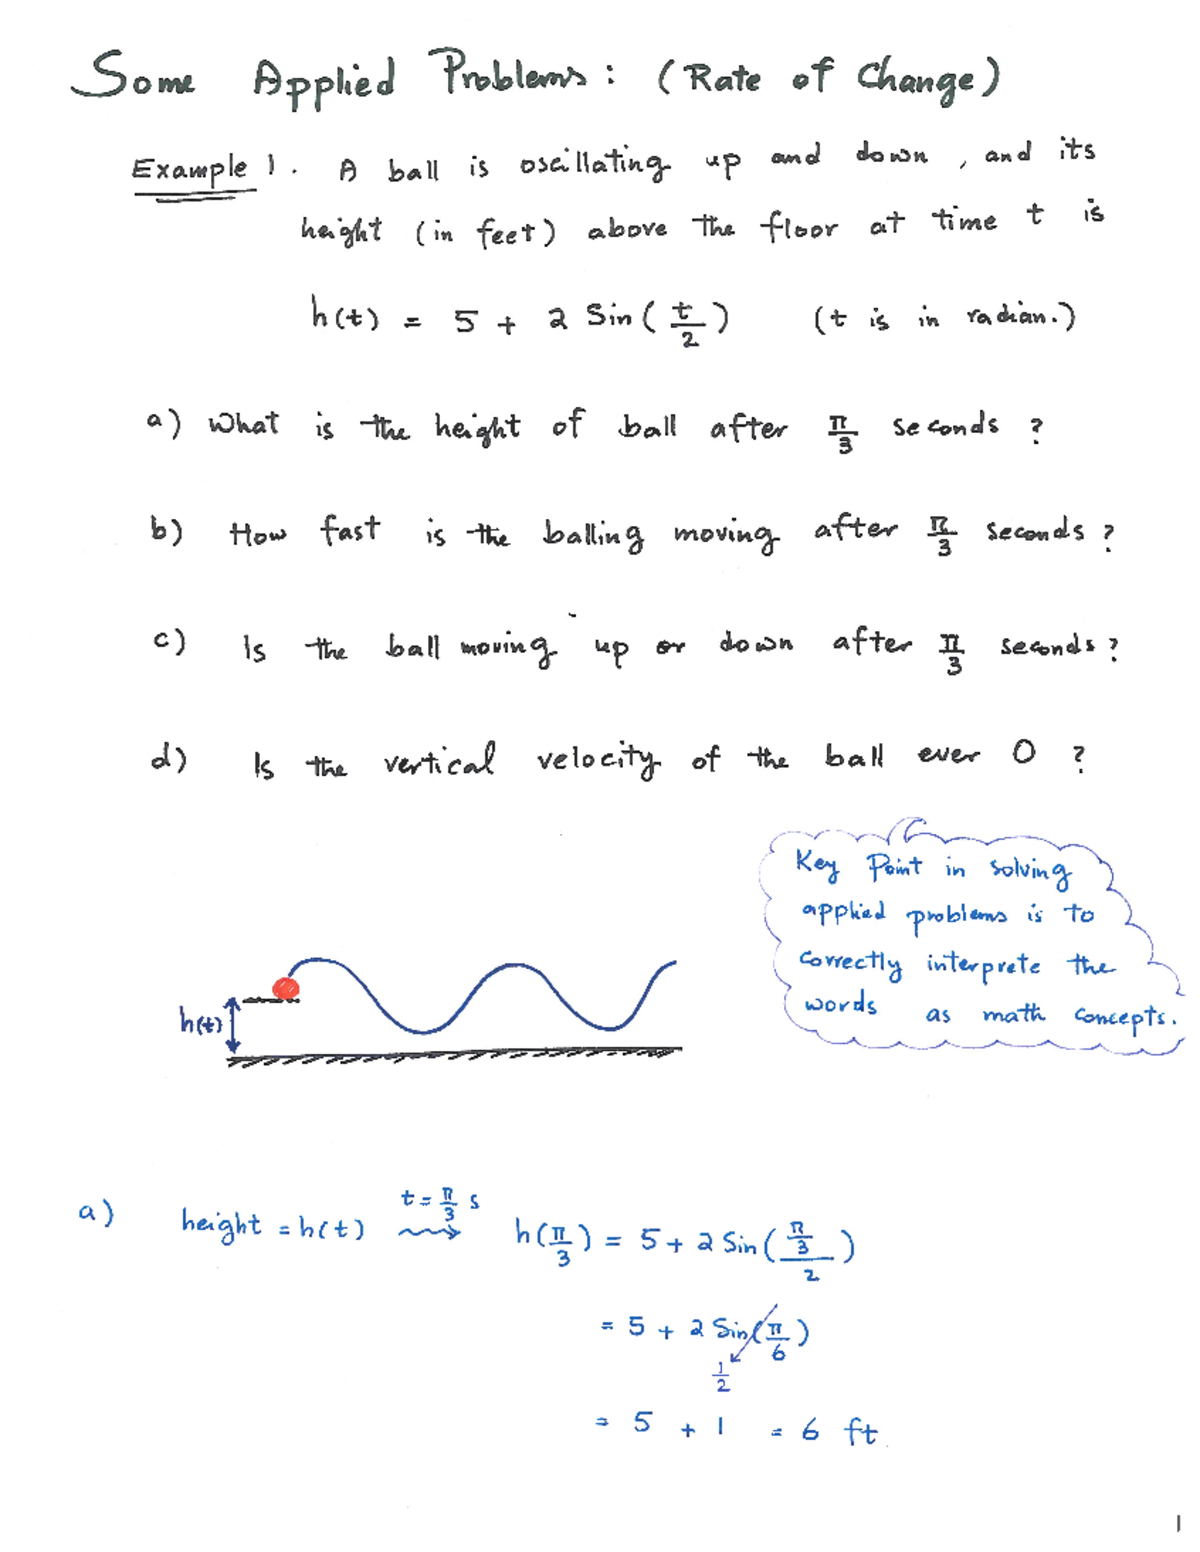 Some Applied Problems: (Rate of Change)
Example 1. A ball is oscillating up and down, and its
height (in feet) above the floor at time t is
h(t) = 5 + 2 Sin(t/2) (t is in radian.)
a) What is the height of ball after π/3 seconds?
b) How fast is the balling moving after π/3 seconds?
c) Is the ball moving up or down after π/3 seconds?
d) Is the vertical velocity of the ball ever 0?
Key Point in solving
applied problems is to
correctly interprete the
words as math concepts.
h(t)
a) height = h(t) t = π/3 s h(π/3) = 5 + 2 Sin((π/3)/2)
= 5 + 2 Sin(π/6)
1/2
= 5 + 1 = 6 ft
1